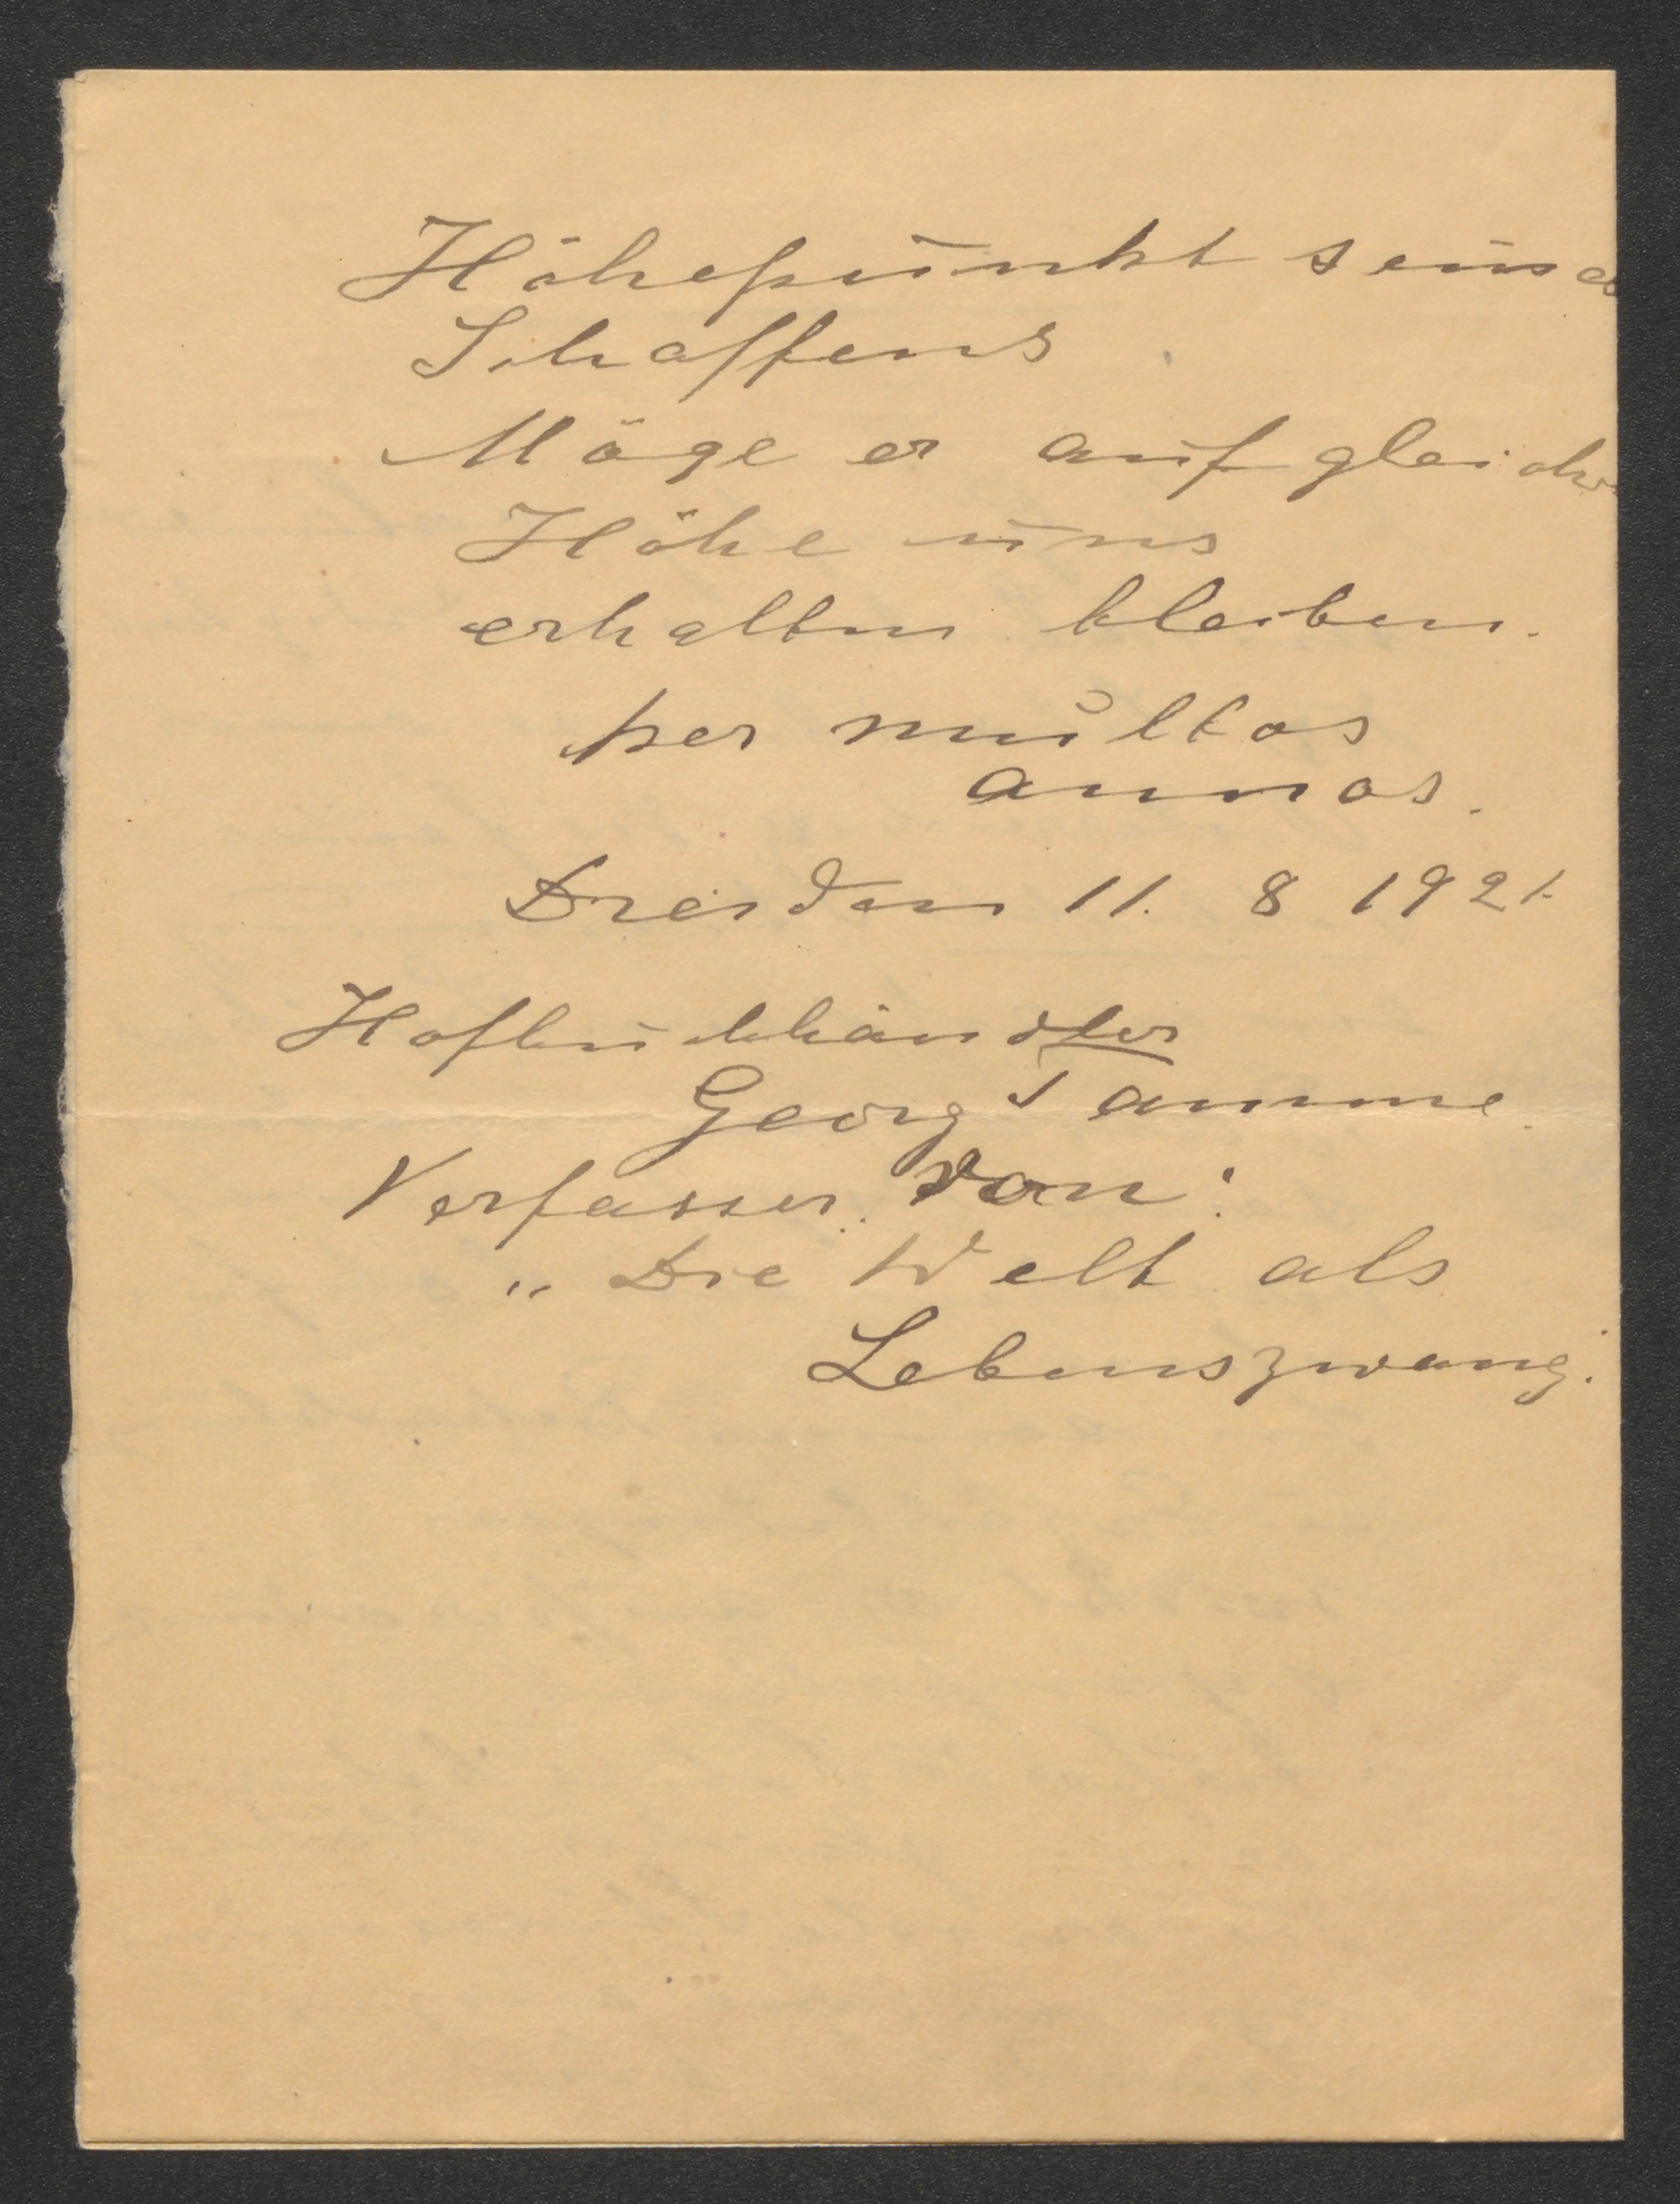 Höhepunkt seines
Schaffens
Möge er auf gleicher
Höhe uns
erhalten bleiben.
per multos
annos.
Dresden 11. 8 1921.
Hofbuchhändler
Georg Tamme
Verfasser von:
„Die Welt als
Lebenszwang.